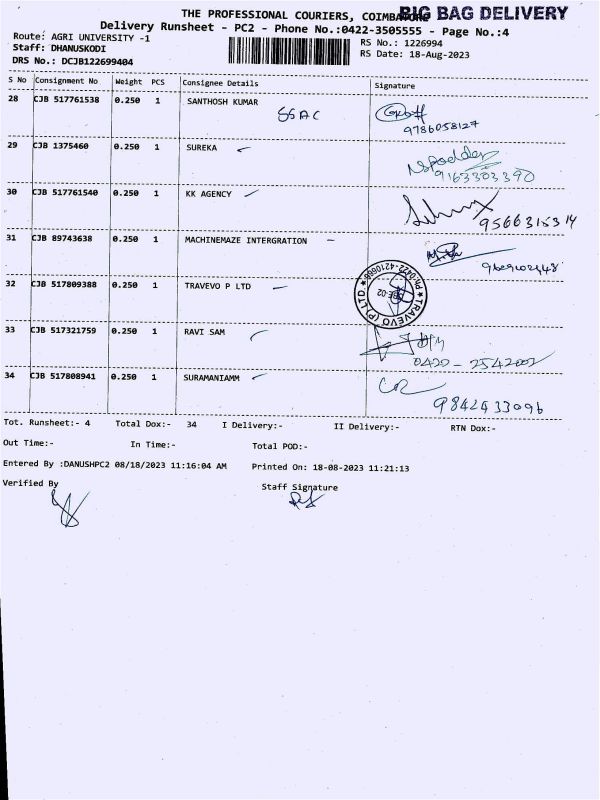 THE PROFESSIONAL COURIERS, COIMBATORE BIG BAG DELIVERY
Delivery Runsheet - PC2 - Phone No.:0422-3505555 - Page No.:4
Route: AGRI UNIVERSITY -1
RS No.: 1226994
Staff: DHANUSKODI
RS Date: 18-Aug-2023
DRS No.: DCJB122699404
S No Consignment No Weight PCS Consignee Details Signature
28 CJB 517761538 0.250 1 SANTHOSH KUMAR
SSAC
9786058127
29 CJB 1375460 0.250 1 SUREKA
9163303390
30 CJB 517761540 0.250 1 KK AGENCY
9566315314
31 CJB 89743638 0.250 1 MACHINEMAZE INTERGRATION
32 CJB 517809388 0.250 1 TRAVEVO P LTD
TRAVEVO (P) LTD. PH:0422-4210666
33 CJB 517321759 0.250 1 RAVI SAM
0422-2542002
34 CJB 517808941 0.250 1 SURAMANIAMM
9842433096
Tot. Runsheet:- 4 Total Dox:- 34 I Delivery:- II Delivery:- RTN Dox:-
Out Time:- In Time:- Total POD:-
Entered By :DANUSHPC2 08/18/2023 11:16:04 AM Printed On: 18-08-2023 11:21:13
Verified By Staff Signature